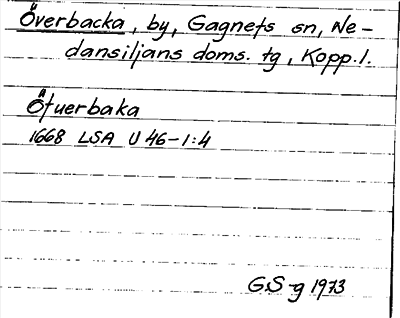 Överbacka, by, Gagnefs sn, Ne-
dansiljans doms. tg, Kopp. l.
Öfuerbaka
1668 LSA U 46-1:4
GS-g 1973